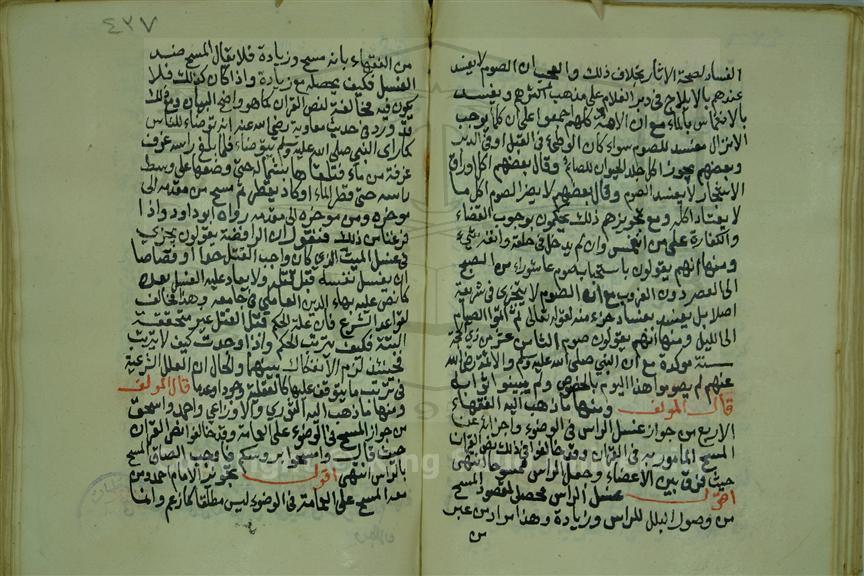 الفساد لصحة الاثار بخلاف ذلك والعجب ان الصوم لا يفسد
عندهم بالايلاج في دبر الغلام على مذهب اكثرهم ويفسد
بالانغماس بالماء مع ان الامة كلهم اجمعوا على ان كلما يوجب
الانزال مفسد للصوم سواء كان الوطئ في القبل او في الدبر
وبعضهم يجوز اكل جلد الحيوان للصائم وقال بعضهم اكل اوراق
الاشجار لا يفسد الصوم وقال بعضهم لا يضر الصوم اكل ما
لا يعتاد اكله ومع تجويزهم ذلك يحكمون بوجوب القضاء
والكفارة على من انغمس وان لم يدخل في حلقه وانفه شيء
ومنها انهم يقولون باستحباب صوم عاشوراء من الصبح
الى العصر دون الغروب مع ان الصوم لا يتجزى في شريعة
اصلا بل يفسد بفساد جزء منه لقوله تعالى ثم اتموا الصيام
الى الليل ومنها انهم يقولون صوم الثامن عشر من ذي الحجة
سنة موكدة مع ان النبي صلى الله عليه وسلم والائمة رضي الله
عنهم لم يصوموا هذا اليوم بالخصوص ولم يبينوا ثوابه
قال المولف ومنها ما ذهب اليه الفقهاء
الاربع من جواز غسل الراس في الوضوء واجزائه عن
المسح المأمور به في القران وقد خالفوا في ذلك نص القران
حيث فرق بين الاعضاء وجعل الراس ممسوحا انتهى
اقول غسل الراس محصل لمقصود المسح
من وصول البلل للراس وزيادة وهذا مراد من عبر
من
٤٣٧
من الفقهاء بانه مسح وزيادة فلا يقال المسح ضد
الغسل فكيف يحصله مع زيادة واذا كان كذلك فلا
يكون فيه مخالفة لنص القران كما هو واضح البيان ومع ذلك
قد ورد في حديث معاوية رضي الله عنه انه توضاء للناس
كما راى النبي صلى الله عليه وسلم يتوضاء فلما بلغ راسه غرف
غرفة من ماء فتلقاها بشماله حتى وضعها على وسط
راسه حتى قطر الماء او كاد يقطر ثم مسح من مقدمه الى
موخره ومن موخره الى مقدمه رواه ابو داود واذا
فرغنا من ذلك فنقول ان الرافضة يقولون يجزي
في غسل الميت الذي كان واجب القتل حدا او قصاصا
ان يغسل نفسه قبل قتله ولا يعاد عليه الغسل بعده
كما نص عليه بهاء الدين العاملي في جامعه وهذا مخالف
لقواعد الشرع فان علة الحكم قبل القتل غير متحققة
البتة فكيف يترتب الحكم واذا وجدت كيف لا يترتب
فحينئذ لزم الانفكاك بينهما والحال ان العلل الشرعية
في ترتب ما يتوقف عليها كالعقلية وجودا وعدما قال المولف
ومنها ما ذهب اليه الثوري والاوزاعي واحمد واسحق
من جواز المسح في الوضوء على العمامة وقد خالفوا نص القران
حيث قال وامسحوا بروسكم فاوجب الصاق المسح
بالراس انتهى اقول تجويز الامام احمد ومن
معه المسح على العمامة في الوضوء ليس مطلقا كما زعم وانما